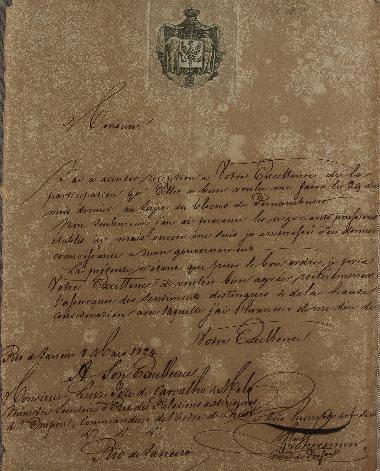 Monsieur
J'ai a accuser reception a Votre Excellence de la
participation qu'Elle a bien voulu me faire le 29 du
mois dernier au sujet du blocus de Pernambuco
Non seulement j'en ai prevenu les negociants
etablis ici mais encore me suis je empressé d'en donner
connoissance a mon gouvernement
La presente n'etant que pour le bon ordre, je prie
Votre Excellence de vouloir bien agréer
l'assurance des Sentiments distingués & de la haute
consideration avec laquelle j'ai l'honneur de me dire de
Votre Excellence
Rio de Janeiro Mars 1824
A Son Excellence
Monsieur Luiz José de Carvalho & Mello
Ministre Secretaire d'Etat des Relations
de l'Empire, Commandeur de l'Ordre du Christ
Rio de Janeiro